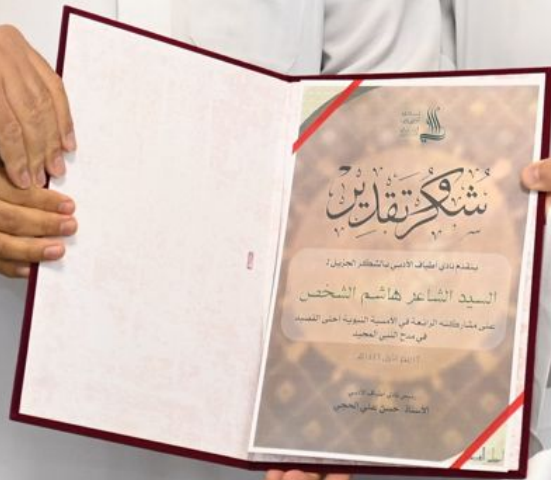 شكر وتقدير
يتقدم نادي أطياف الأدبي بالشكر الجزيل :
السيد الشاعر هاشم الشخص
على مشاركته الرائعة في الأمسية النبوية أحلى القصيد
في مدح النبي المجيد
رئيس نادي أطياف الأدبي
الأستاذ: حسن علي الحجي